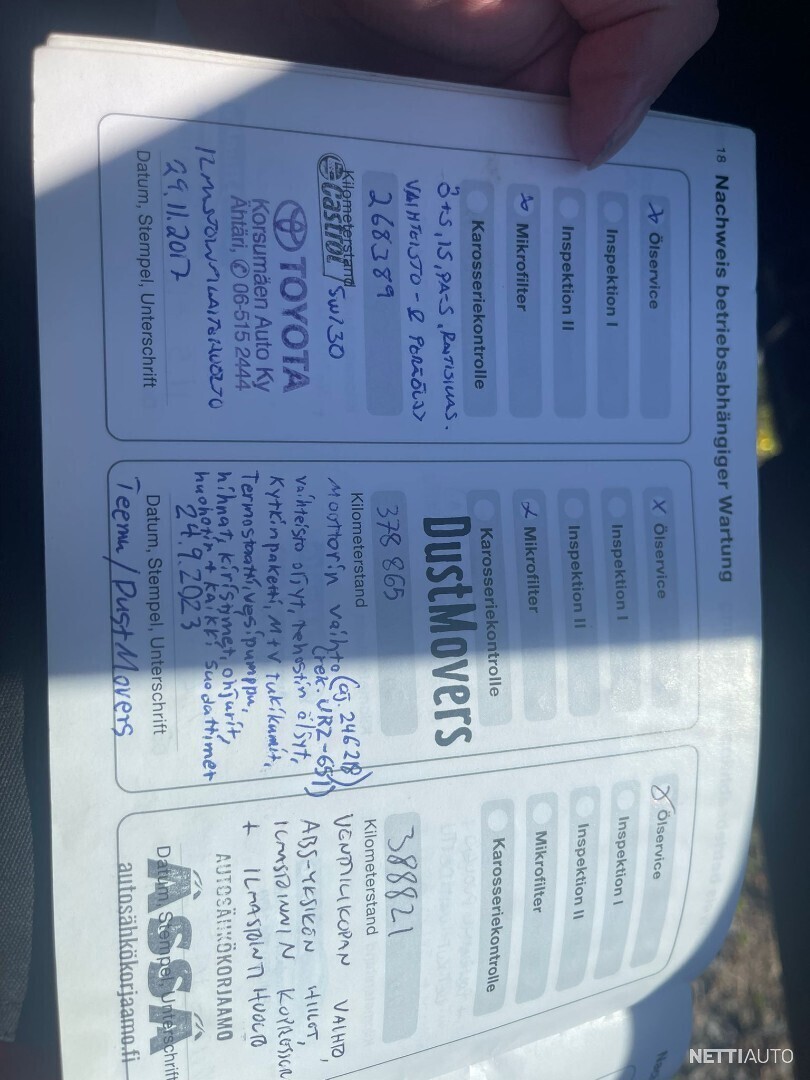 18 Nachweis betriebsabhängiger Wartung
X Ölservice
Inspektion I
Inspektion II
Mikrofilter
Karosseriekontrolle
Ö+S, IS, PA-S,
VAIHTEISTO- & PERÄÖLJY
268389
Kilometerstand
Castrol 5W30
TOYOTA
Korsumäen Auto Ky
Ähtäri, ✆ 06-515 2444
ILMASTOINTILAITEHUOLTO
29.11.2017
Datum, Stempel, Unterschrift
X Ölservice
Inspektion I
Inspektion II
X Mikrofilter
Karosseriekontrolle
DustMovers
378 865
Kilometerstand
Moottorin vaihto (aj. 246 218)
(rek. URZ-651)
vaihteisto öljyt, tehostin öljyt,
Kytkinpaketti, M+V tukikumit,
Termostaatti, vesipumppu,
hihnat, kiristimet, ohjurit,
huohotin + kaikki suodattimet
24.9.2023
Datum, Stempel, Unterschrift
Teemu/DustMovers
X Ölservice
Inspektion I
Inspektion II
Mikrofilter
Karosseriekontrolle
388821
Kilometerstand
VENTTIILIKOPAN VAIHTO,
ABS-YKSIKÖN HIILET,
ILMASTOINNIN
+ ILMASTOINTIHUOLTO
AUTOSÄHKÖKORJAAMO
ASSA
Datum, Stempel, Unterschrift
autosähkökorjaamo.fi
NETTIAUTO